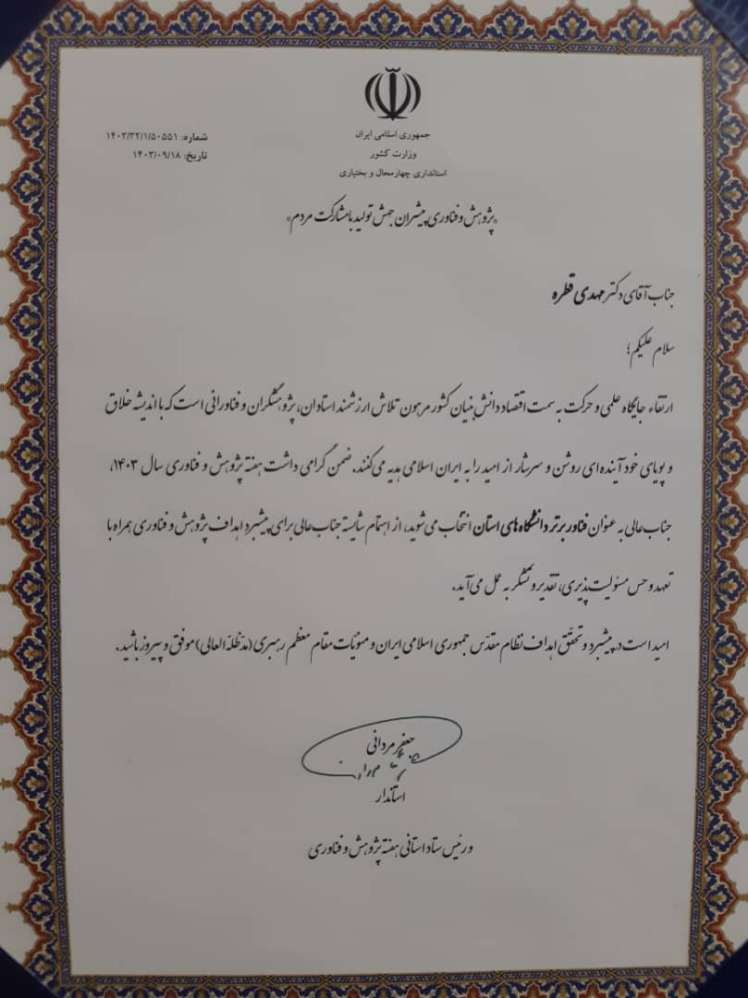 جمهوری اسلامی ایران
وزارت کشور
استانداری چهارمحال و بختیاری
شماره: ۱۴۰۳/۳۲/۱/۵۰۵۵۱
تاریخ: ۱۴۰۳/۰۹/۱۸
«پژوهش و فناوری پیشران جهش تولید با مشارکت مردم»
جناب آقای دکتر مهدی قطره
سلام علیکم؛
ارتقاء جایگاه علمی و حرکت به سمت اقتصاد دانش‌بنیان کشور مرهون تلاش ارزشمند استادان، پژوهشگران و فناورانی است که با اندیشه خلاق
و پویای خود آینده‌ای روشن و سرشار از امید را به ایران اسلامی هدیه می‌کنند. ضمن گرامی داشت هفته پژوهش و فناوری سال ۱۴۰۳،
جناب‌عالی به عنوان فناور برتر دانشگاه‌های استان انتخاب می‌شوید، از اهتمام شایسته جناب‌عالی برای پیشبرد اهداف پژوهش و فناوری همراه با
تعهد و حس مسئولیت‌پذیری، تقدیر و تشکر به عمل می‌آید.
امید است در پیشبرد و تحقّق اهداف نظام مقدّس جمهوری اسلامی ایران و منویّات مقام معظم رهبری (مدّظلّه العالی) موفق و پیروز باشید.
جعفر مردانی
استاندار
و رئیس ستاد استانی هفته پژوهش و فناوری